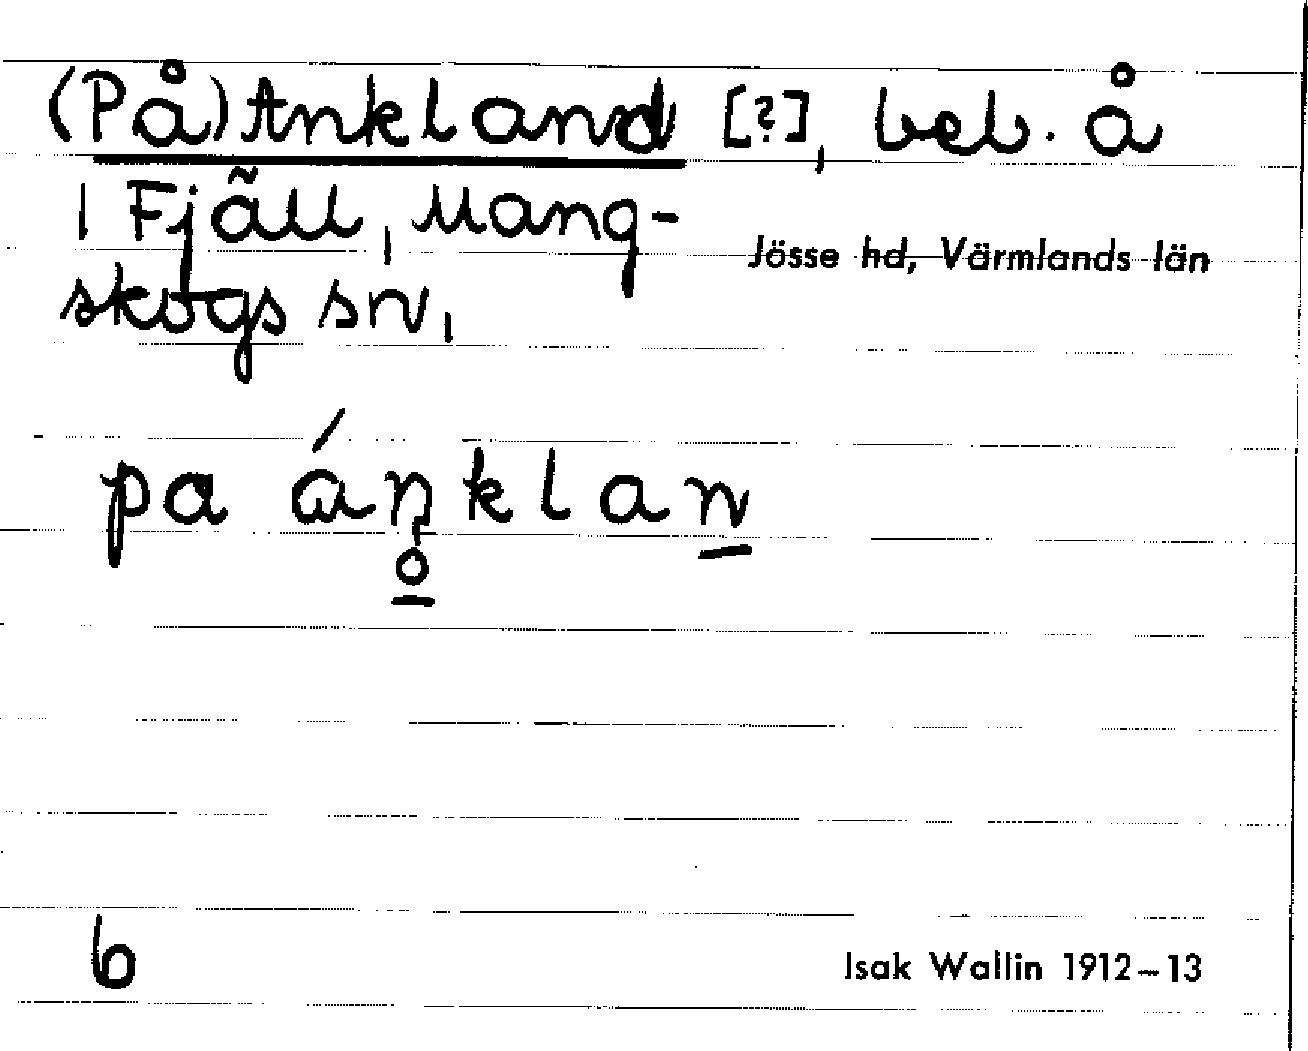 (På) Ankland [?], beb. å
1 Fjäll, Mang-
skogs sn,
Jösse hd, Värmlands län
pa áŋ̥klan
6
Isak Wallin 1912–13